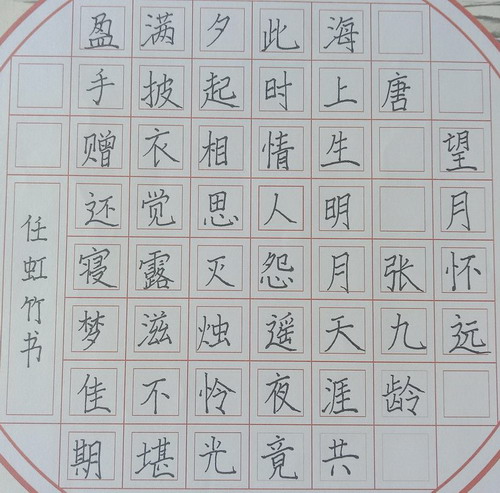 望月怀远
唐 张九龄
海上生明月天涯共
此时情人怨遥夜竟
夕起相思灭烛怜光
满披衣觉露滋不堪
盈手赠还寝梦佳期
任虹竹书